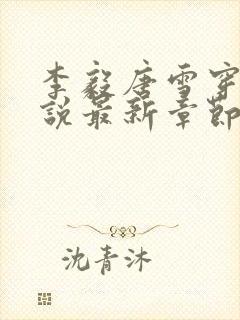 李毅唐雪穿
說最新章節
沈青沐